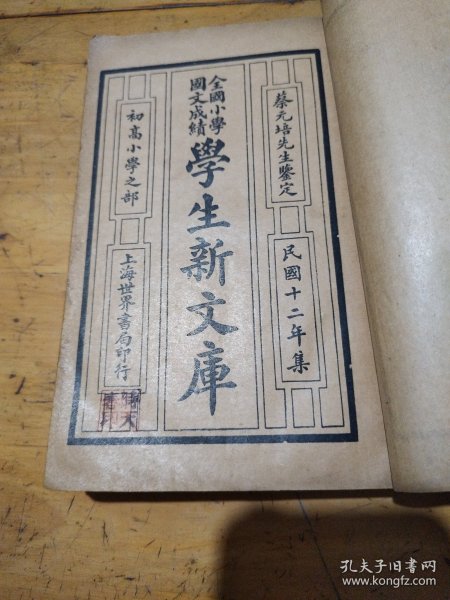 蔡元培先生鑒定
民國十二年集
全國小學
國文成績
學生新文庫
初高小學之部
上海世界書局印行
孔夫子旧书网
www.kongfz.com